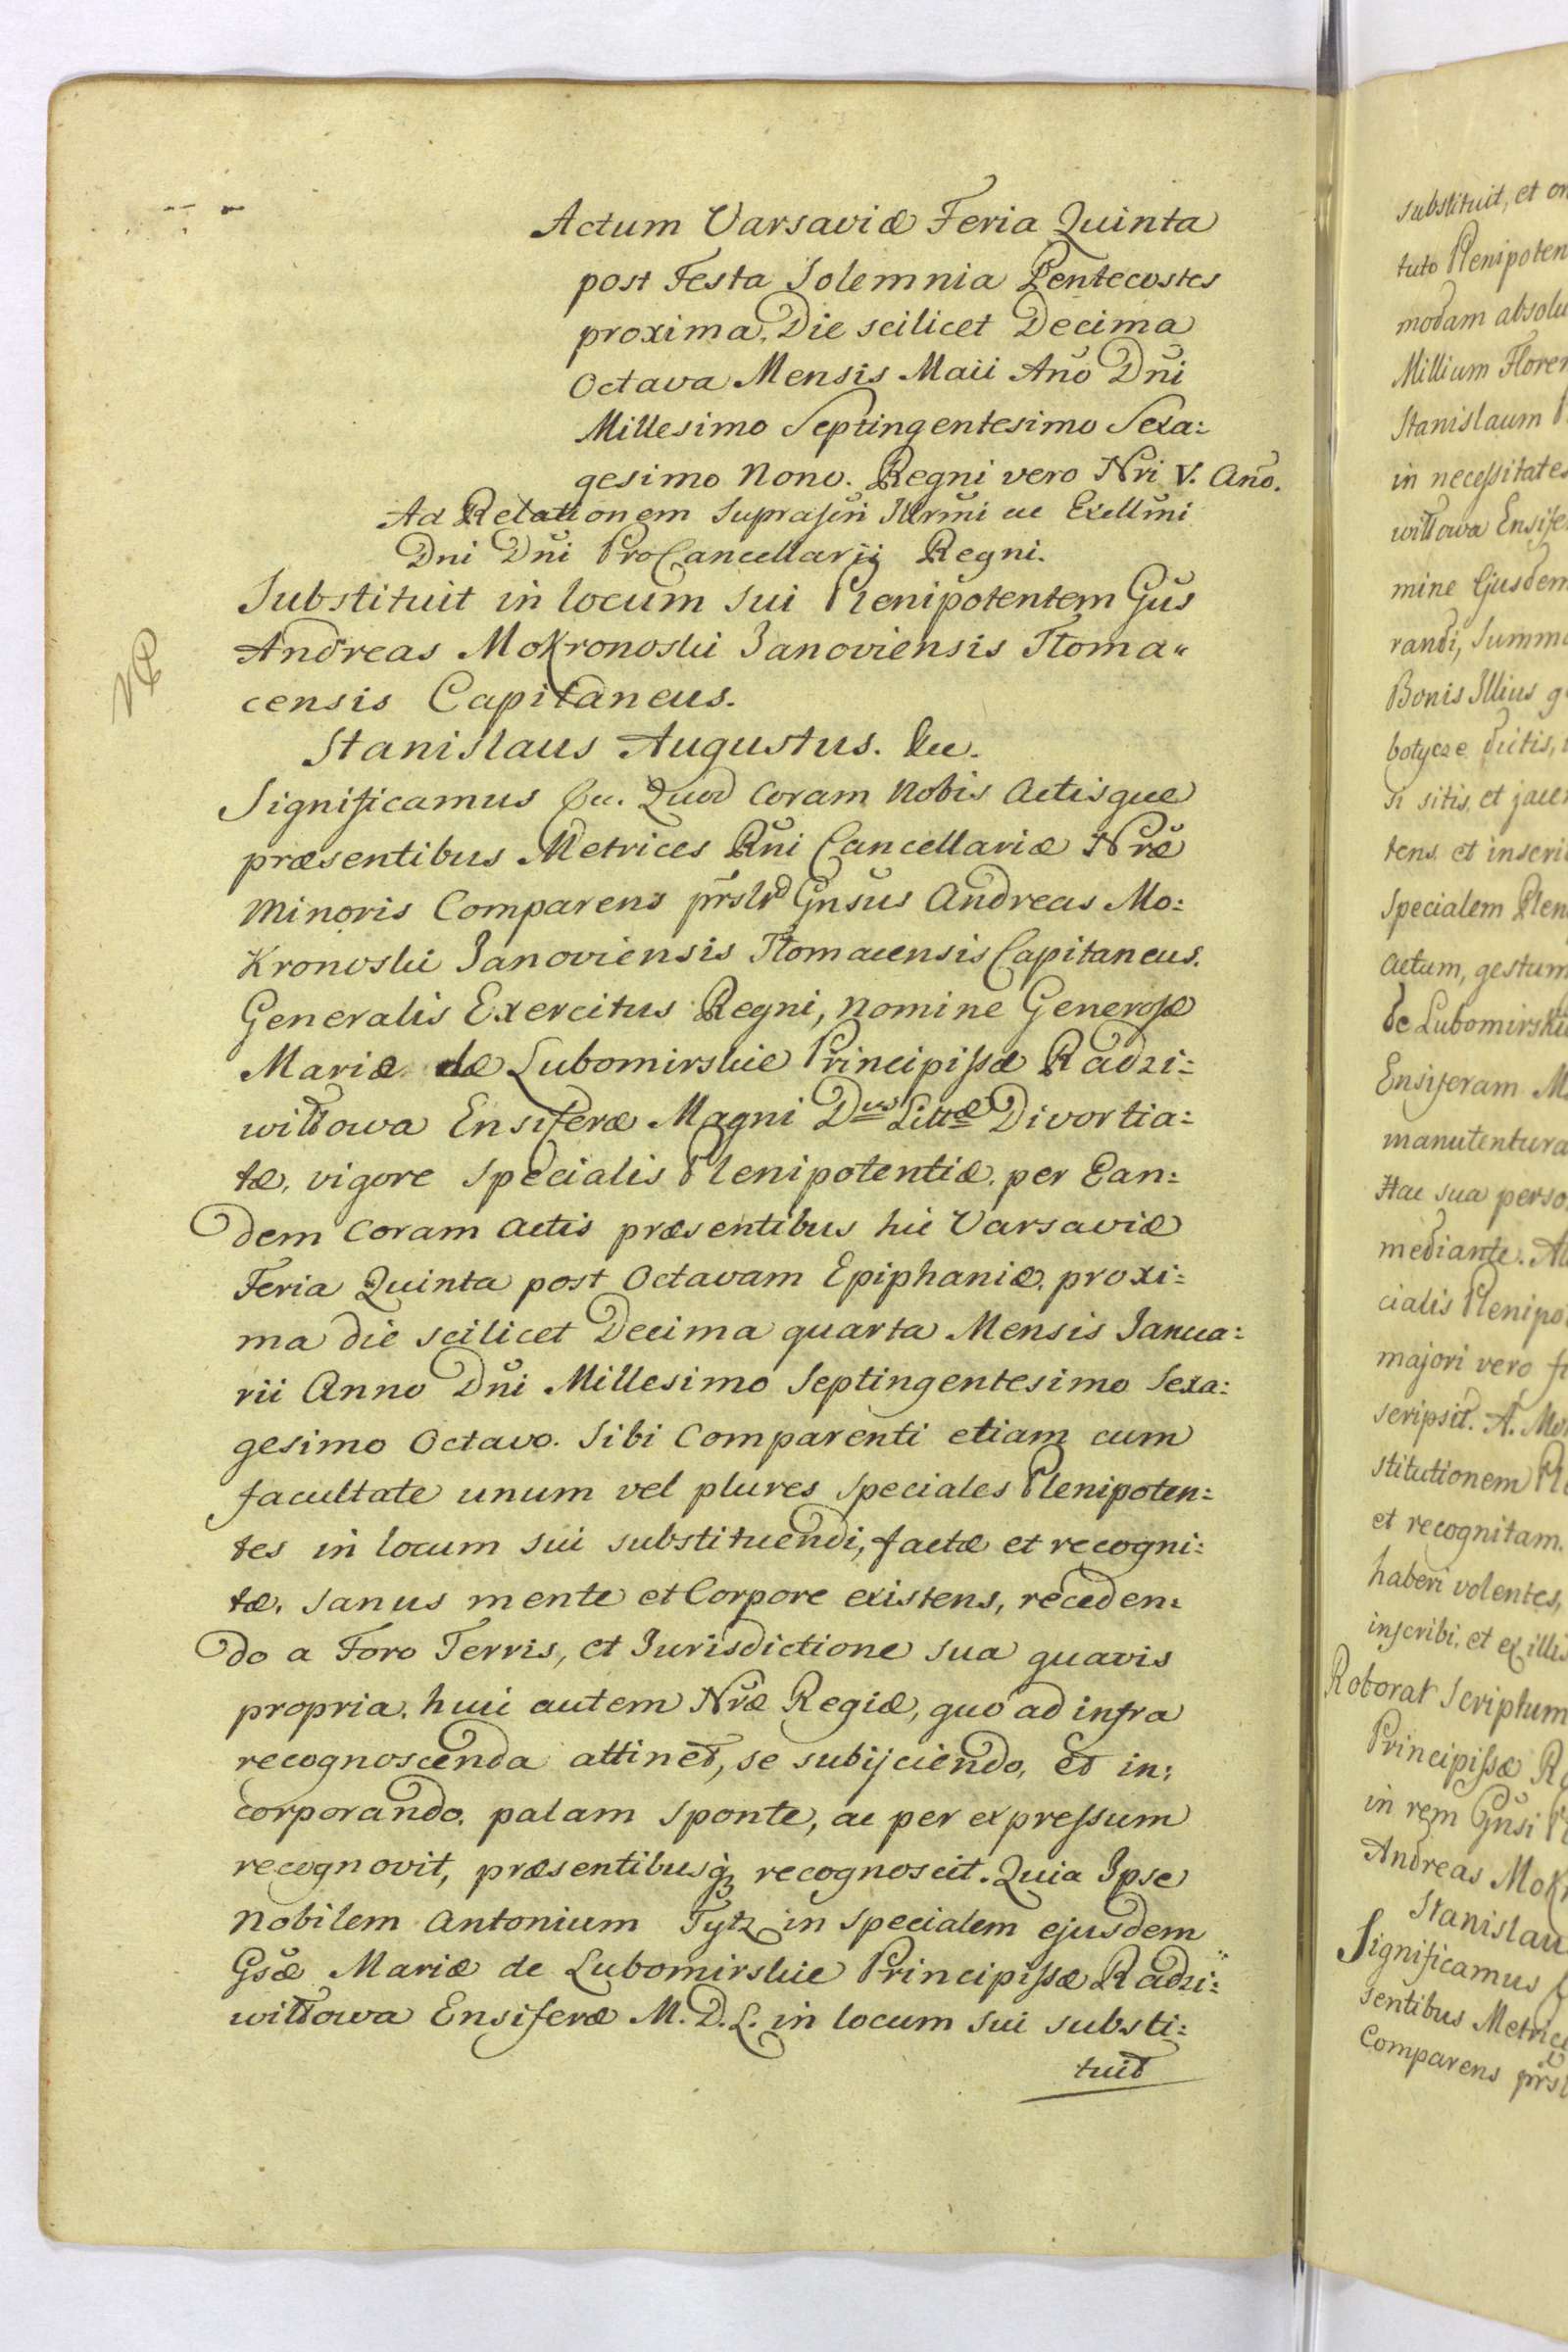 Actum Varsaviæ Feria Quinta
post Festa Solemnia Pentecostes
proxima, Die scilicet Decima
Octava Mensis Maii Año Dñi
Millesimo Septingentesimo Sexa:
gesimo Nono. Regni vero Nri V. Año.
Ad Relationem Suprascri Illrmi ac Excellmi
Dni Dñi ProCancellarij Regni.
Substituit in locum sui Plenipotentem Gñs
Andreas Mokronoski Janoviensis Tłoma„
censis Capitaneus.
Stanislaus Augustus. &c.
Significamus &c. Quod Coram Nobis Actisque
præsentibus Metrices Rñi Cancellariæ Nræ
Minoris Comparens prslr Gnsus Andreas Mo:
Kronoski Janoviensis Tłomacensis Capitaneus.
Generalis Exercitus Regni, nomine Generosæ
Mariæ de Lubomirskie Principissæ Radzi:
wiłłowa Ensiferæ Magni Dus Littæ Divortia:
tæ, vigore specialis Plenipotentiæ, per Ean:
dem Coram Actis præsentibus hic Varsaviæ
Feria Quinta post Octavam Epiphaniæ, proxi:
ma die scilicet Decima quarta Mensis Janua:
rii Anno Dñi Millesimo Septingentesimo Sexa:
gesimo Octavo. Sibi Comparenti etiam cum
facultate unum vel plures speciales Plenipoten:
tes in locum sui substituendi, factæ et recogni:
tæ, sanus mente et Corpore existens, receden:
do a Foro Terris, et Jurisdictione sua quavis
propria, huic autem Nræ Regiæ, quo ad infra
recognoscenda attinet, se subijciendo, et in:
corporando, palam sponte, ac per expressum
recognovit, præsentibusq recognoscit. Quia Ipse
Nobilem Antonium Tytz in specialem ejusdem
Gsæ Mariæ de Lubomirskie Principissæ Radzi:
wiłłowa Ensiferæ M. D. L. in locum sui substi:
tuit
substituit, et
tuto Plenipoten
modam absolu
Millium Floren
Stanislaum
in necessitates
wiłłowa Ensife
mine Ejusdem
randi, Summa
Bonis Illius
botycze dictis,
si sitis, et jacen
tens, et inscri
Specialem Plen
Actum, gestum
de Lubomirskie
Ensiferam M
manutentura
Hac sua perso
mediante.
cialis Plenipo
majori vero
scripsit. A. Mo
stitutionem Pl
et recognitam.
haberi volentes,
inscribi, et ex illis
Roborat Scriptum
Principissæ Ra
in rem Gnsi
Andreas Mok
Stanislau
Significamus
sentibus Metrice
Comparens prsl